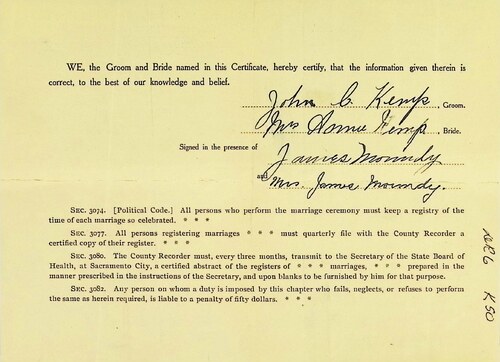 WE, the Groom and Bride named in this Certificate, hereby certify, that the information given therein is
correct, to the best of our knowledge and belief.
John C Kemp, Groom.
Mrs Kemp, Bride.
Signed in the presence of
James Moundy
and Mrs. James Moundy.
SEC. 3074. [Political Code.] All persons who perform the marriage ceremony must keep a registry of
the time of each marriage so celebrated. * * *
SEC. 3077. All persons registering marriages * * * must quarterly file with the County Recorder
a certified copy of their register. * * *
SEC. 3080. The County Recorder must, every three months, transmit to the Secretary of the State Board of
Health, at Sacramento City, a certified abstract of the registers of * * * marriages, * * * prepared in the
manner prescribed in the instructions of the Secretary, and upon blanks to be furnished by him for that purpose.
SEC. 3082. Any person on whom a duty is imposed by this chapter who fails, neglects, or refuses to perform
the same as herein required, is liable to a penalty of fifty dollars. * * *
K50